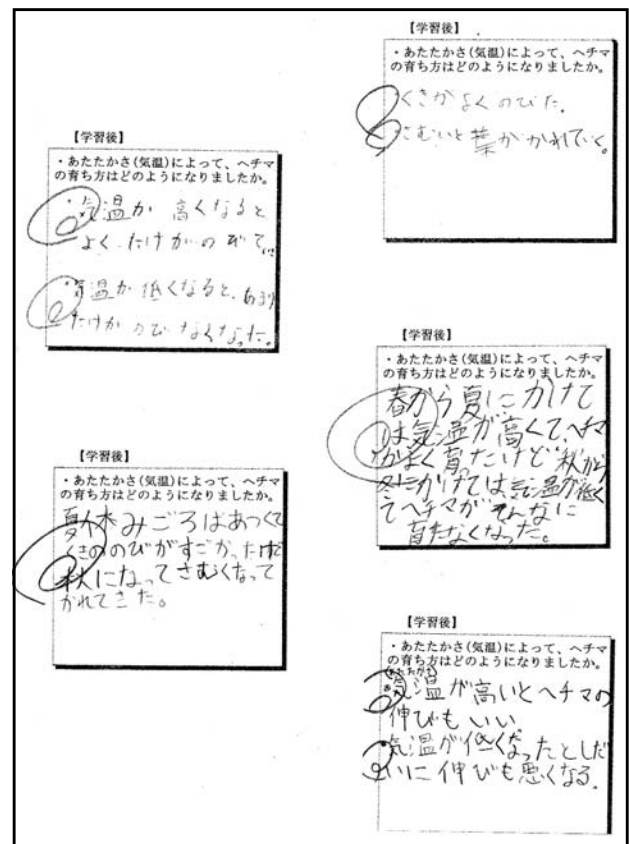 【学習後】
・あたたかさ(気温)によって、ヘチマ
の育ち方はどのようになりましたか。
・気温が高くなると
よくたけがのびて、
・気温が低くなると、あまり
たけがのびなくなった。
【学習後】
・あたたかさ(気温)によって、ヘチマ
の育ち方はどのようになりましたか。
夏休みごろはあつくて
くきののびがすごかったけど
秋になってさむくなって
かれてきた。
【学習後】
・あたたかさ(気温)によって、ヘチマ
の育ち方はどのようになりましたか。
くきがよくのびた。
さむいと葉がかれていく。
【学習後】
・あたたかさ(気温)によって、ヘチマ
の育ち方はどのようになりましたか。
春から夏にかけて
は気温が高くて、ヘチマ
がよく育ったけど秋から
冬にかけては気温が低く
てヘチマがそんなに
育たなくなった。
【学習後】
・あたたかさ(気温)によって、ヘチマ
の育ち方はどのようになりましたか。
気温が高いとヘチマの
伸びもいい
気温が低くなったとしだ
いに伸びも悪くなる.